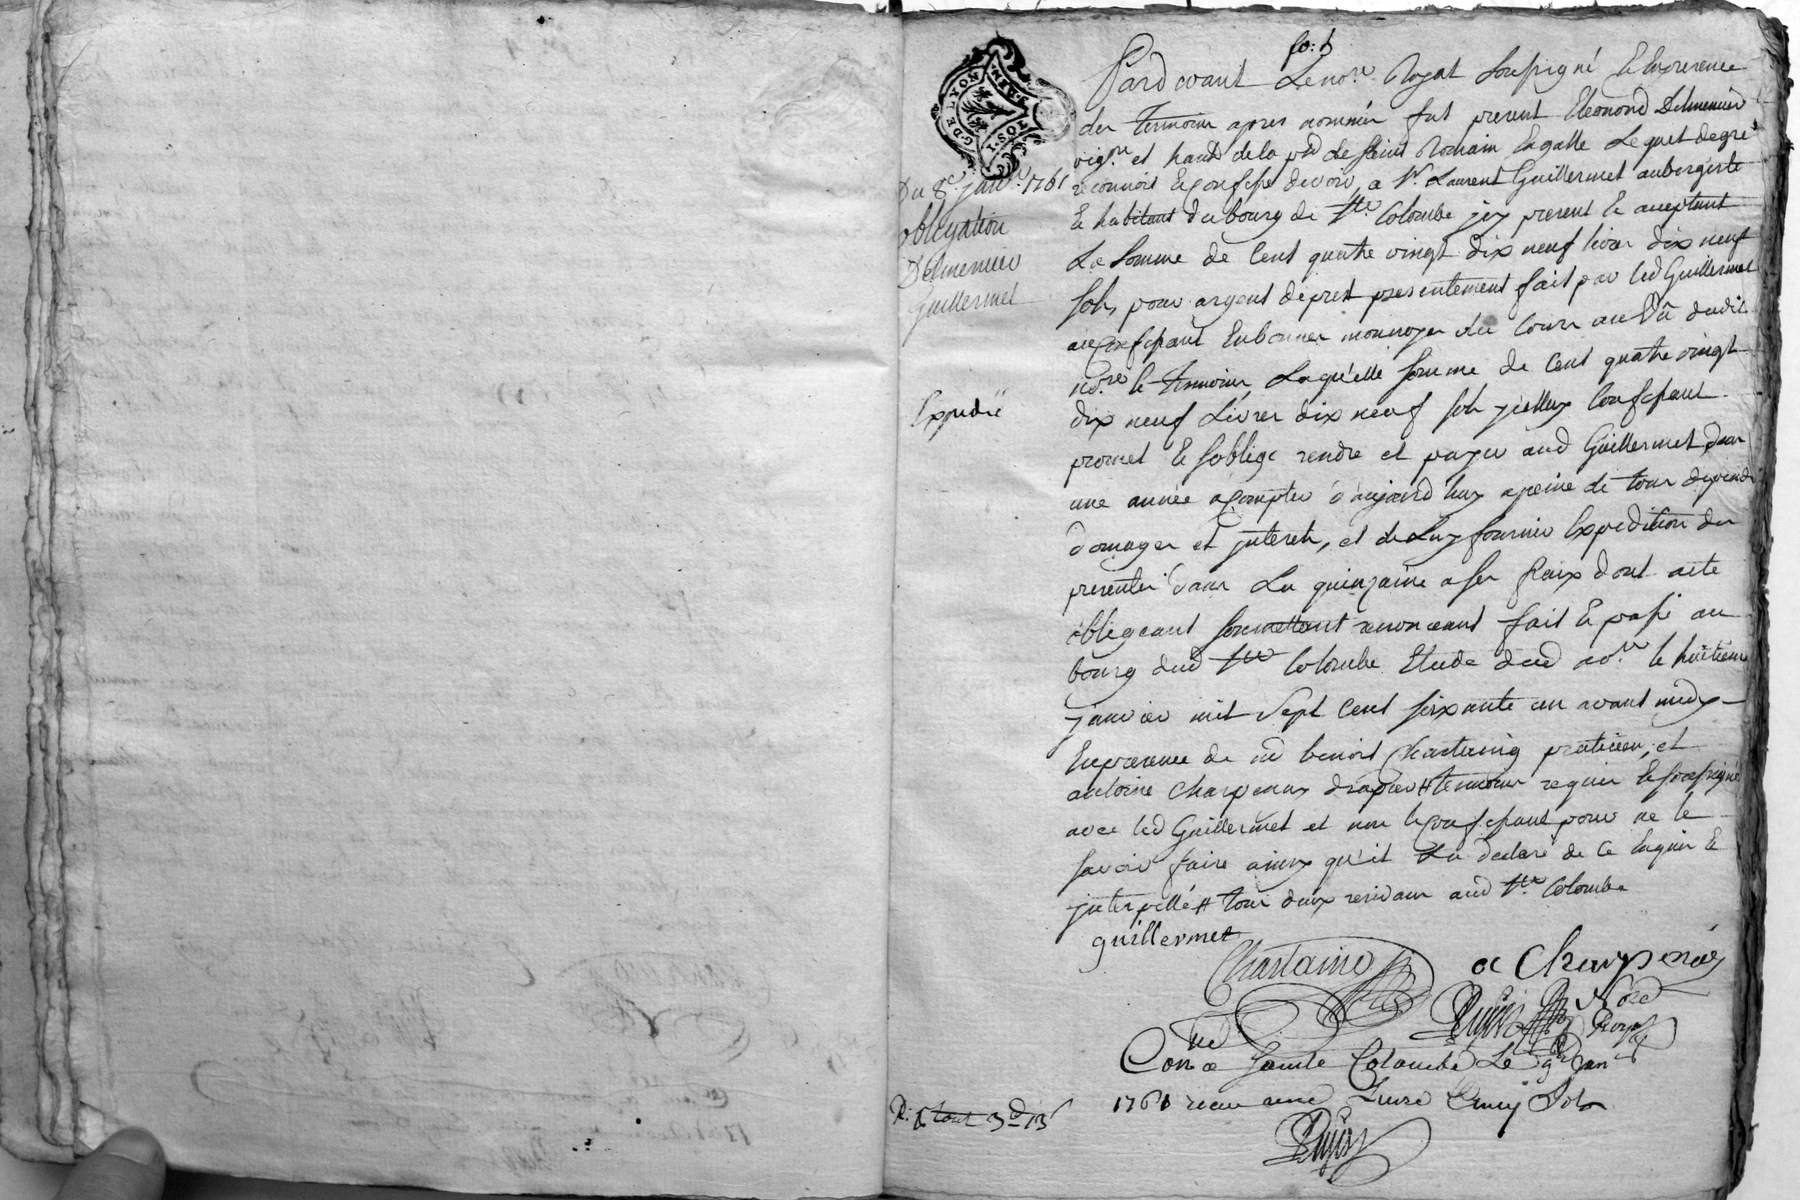 fo: 1
G. DE LYON
Pardevant Le no.re Royal soussigné Et en presence
des temoins apres nommés fut present Eleonord Delmenico
vig.on et habt de la p.sse de saint Romain en galle Lequel de gré
Du 8e janv.r 1761
reconnoit Et confesse devoir a Sr. Laurent Guillermet aubergiste
Et habitant du bourg de Ste. Colombe icy present Et acceptant
obligation
La somme de Cent quatre vingt dix neuf livres dix neuf
Delmenico
sols, pour argent de prest presentement fait par led Guillermet
Guillermet
au confessant En bonnes monnoyes du Cours au vû dudit
no.re Et temoins, Laquelle somme de Cent quatre vingt
Expedié
dix neuf Livres dix neuf sols yielluy Confessant
promet Et s'oblige rendre et payer aud Guillermet dans
une année a compter d'aujourd'huy a peine de tous depends
domages et interets, et de Luy fournir Expedition des
presentes dans La quinzaine a ses fraix dont acte
obligeant soumettant renonceant fait Et passé au
bourg dud Ste Colombe Etude dud no.re le huitieme
janvier mil sept Cent soixante un avant midy
En presence de me benoist Chartaing praticien, et
antoine Charpenay drapier # temoins requis Et soussigné
avec led Guillermet et non le confessant pour ne le
savoir faire ainsy qu'il La declaré de ce Enquis Et
interpellé # tous deux residans aud Ste. Colombe
guillermet
Chartaing
a Charpenay
Nore
Royal
Con.lé a Sainte Colombe Le 9e Jan
1761 reçu une Livre Cinq Sols